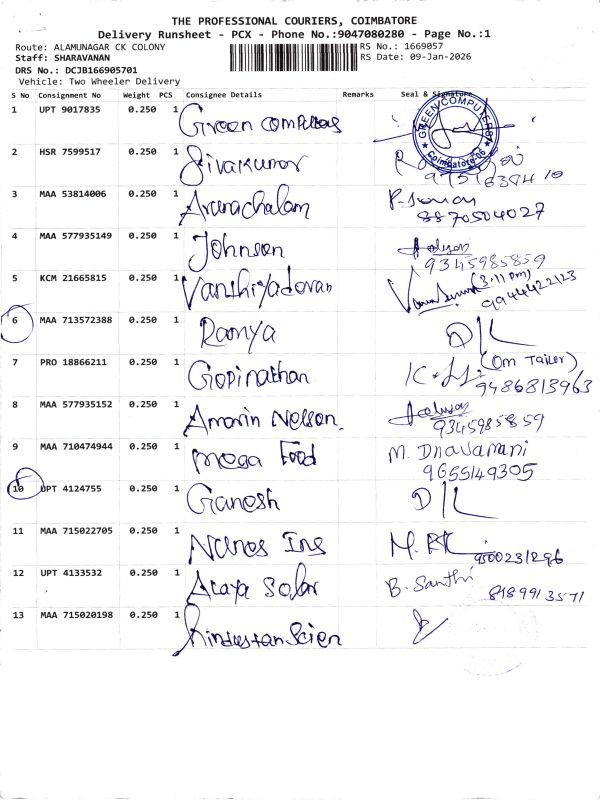 THE PROFESSIONAL COURIERS, COIMBATORE
Delivery Runsheet - PCX - Phone No.:9047080280 - Page No.:1
Route: ALAMUNAGAR CK COLONY RS No.: 1669057
Staff: SHARAVANAN RS Date: 09-Jan-2026
DRS No.: DCJB166905701
Vehicle: Two Wheeler Delivery
S No Consignment No Weight PCS Consignee Details Remarks Seal & Signature
1 UPT 9017835 0.250 1 Green computers
GREEN COMPUTERS
Coimbatore-06
2 HSR 7599517 0.250 1 Sivakumar
3 MAA 53814006 0.250 1 Arunachalam
8870504027
4 MAA 577935149 0.250 1 Johnson
9345985859
5 KCM 21665815 0.250 1 Vanthiyadevan (3:11 pm)
9944422123
6 MAA 713572388 0.250 1 Ramya D/L
7 PRO 18866211 0.250 1 Gopinathan (Om Tailer)
9486813963
8 MAA 577935152 0.250 1 Amarin Nelson
9345985859
9 MAA 710474944 0.250 1 mega Food M. Dhavamani
9655149305
10 UPT 4124755 0.250 1 Ganesh D/L
11 MAA 715022705 0.250 1 Nanos Ins 9500231296
12 UPT 4133532 0.250 1 Araya Solar B. Santhi
8189913571
13 MAA 715020198 0.250 1 hindustan Scien